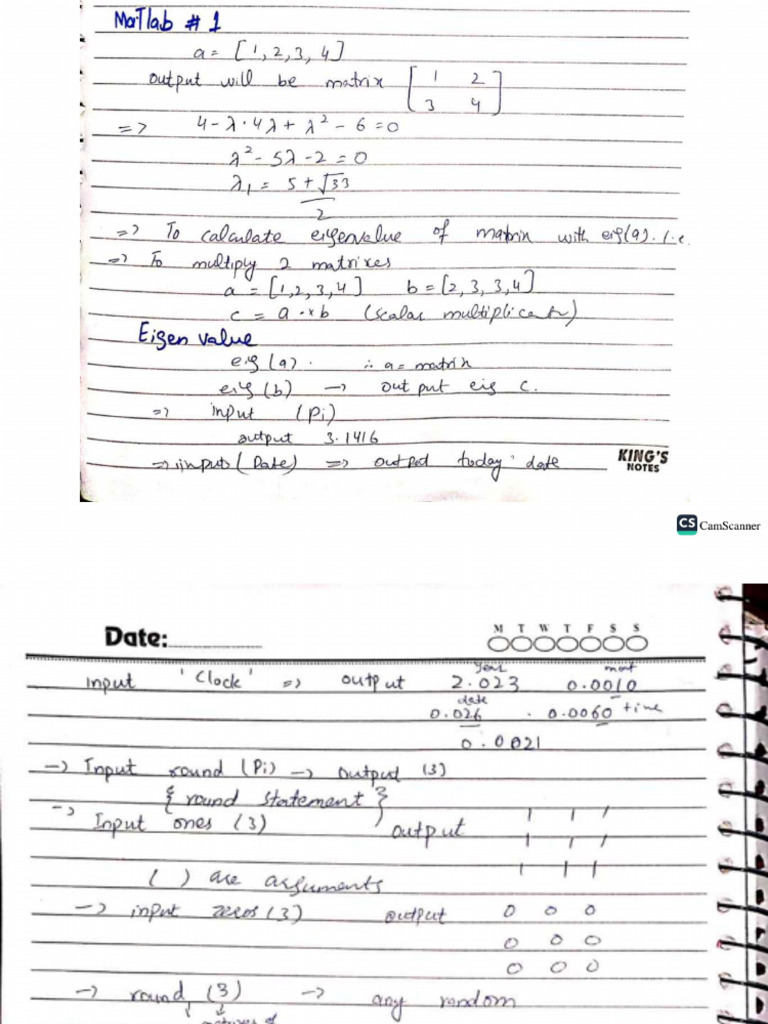 MaTlab # 1
a = [1, 2, 3, 4]
output will be matrix [1 2
3 4]
=> 4 - λ · 4λ + λ² - 6 = 0
λ² - 5λ - 2 = 0
λ₁ = 5 + √33
2
=> To calculate eigenvalue of matrix with eig(a). i.e
=> To multiply 2 matrixes
a = [1,2,3,4] b = [2,3,3,4]
c = a .* b (scalar multiplicat)
Eigen value
eig (a) . ∴ a = matrix
eig (b) → output eig c.
=> input (Pi)
output 3.1416
=> input (Date) => output today date
KING'S
NOTES
CS CamScanner
Date:
M T W T F S S
year
Input 'Clock' => output 2.023 0.0010
date
0.026 . 0.0060 time
0.0021
→ Input round (Pi) → output (3)
{ round statement }
→ Input ones (3) output 1 1 1
1 1 1
1 1 1
( ) are arguments
→ input zeros (3) output 0 0 0
0 0 0
0 0 0
→ round (3) → any random